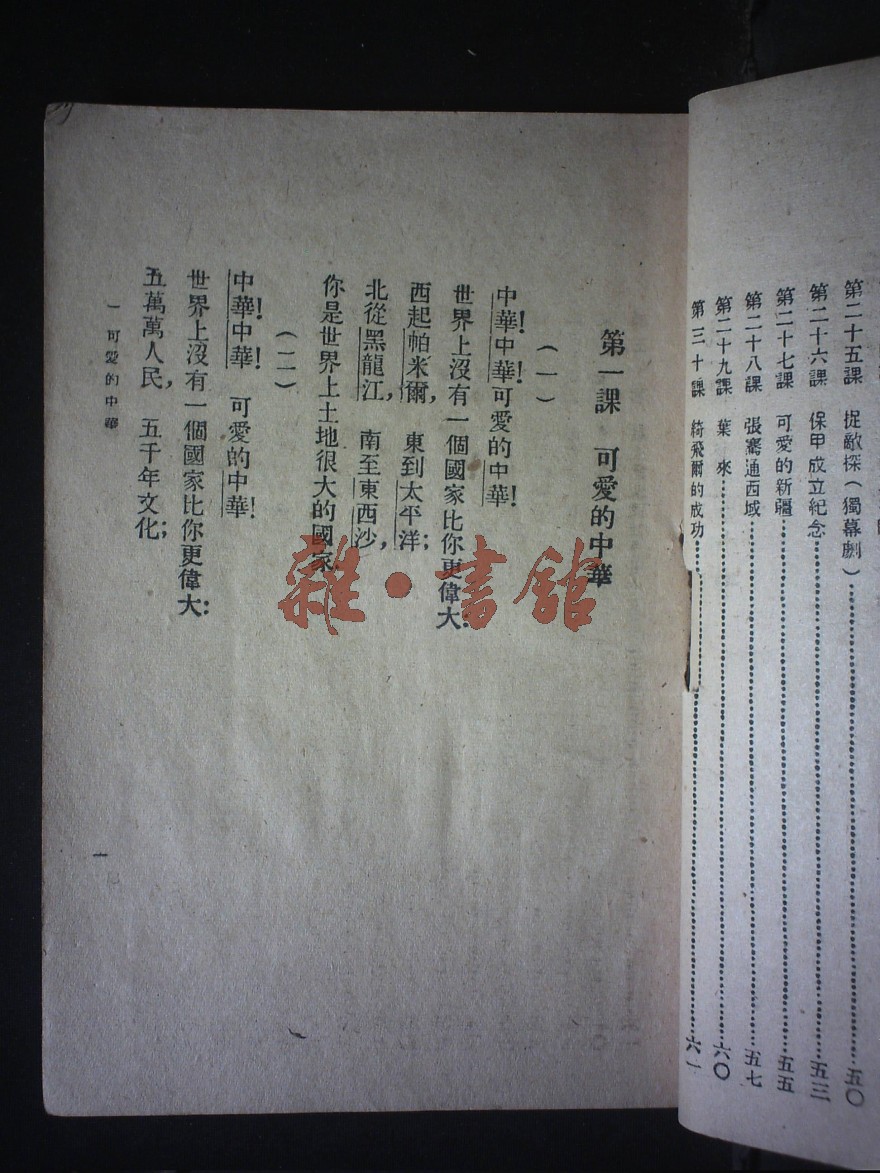 第二十五課 捉敵探(獨幕劇)……五〇
第二十六課 保甲成立紀念……五三
第二十七課 可愛的新疆……五五
第二十八課 張騫通西域……五七
第二十九課 葉來……六〇
第三十課 綺飛爾的成功……六一
第一課 可愛的中華
(一)
中華!中華!可愛的中華!
世界上沒有一個國家比你更偉大:
西起帕米爾, 東到太平洋;
北從黑龍江, 南至東西沙,
你是世界上土地很大的國家
(二)
中華!中華! 可愛的中華!
世界上沒有一個國家比你更偉大:
五萬萬人民, 五千年文化;
一 可愛的中華
一
雜·書館